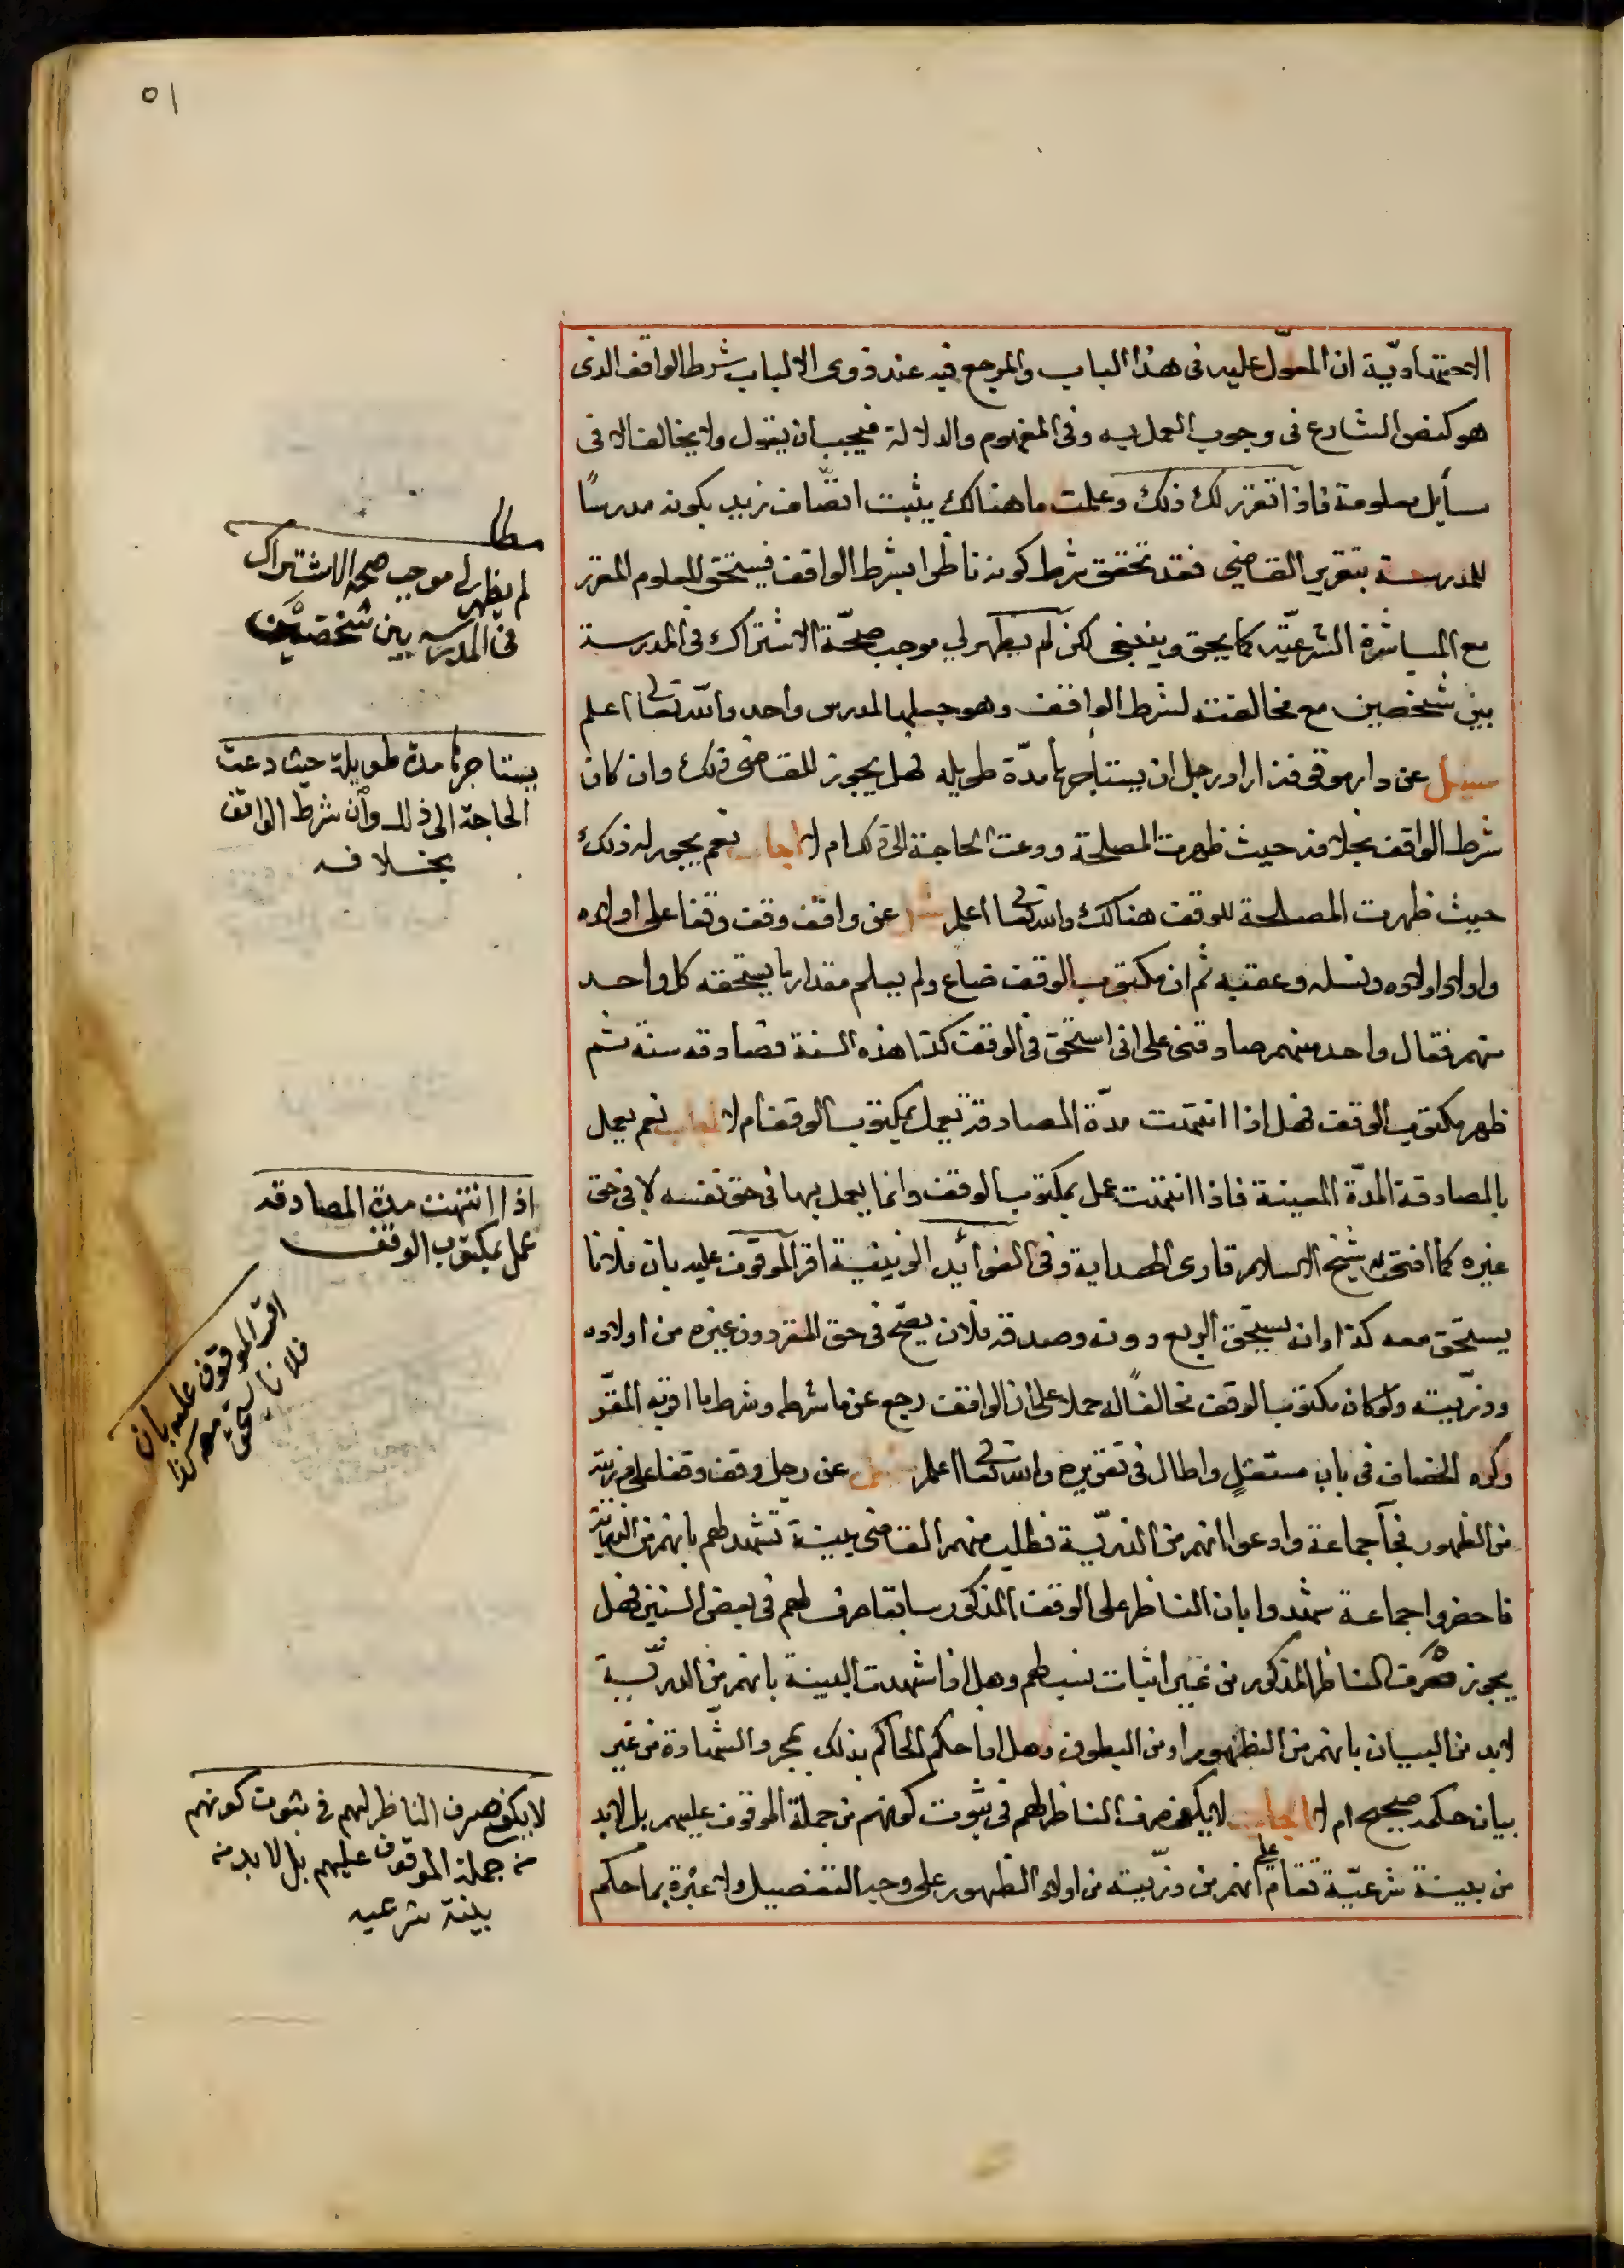 ٥١
الاجتهاديّة ان المعوّل عليه فى هذا الباب والمرجع فيه عند ذوى الالباب شرط الواقف الذى
هو كنص الشارع فى وجوب العمل به وفى المفهوم والدلالة فيجب ان يقول ولا يخالف الا فى
سأيل معلومة فاذا تقرر لك ذلك وعلمت ما هنالك يثبت اتصّاف زيد بكونه مدرسًا
للمدرسة بتقرير القاضي فقد تحقق شرط كونه ناظرا بشرط الواقف فيستحق المعلوم المقرر
مع المباشرة الشرعيّة كما يحق وينبغى لكن لم يظهر لي موجب صحّة الاشتراك فى المدرسة
بين شخصين مع مخالفته لشرط الواقف وهو جعلها لمدرس واحد والله تعالى اعلم
سيئل عن دار موقوفة اراد رجل ان يستأجرها مدّة طويله فهل يجوز للقاضى ذلك وان كان
شرط الواقف بخلافه حيث ظهرت المصلحة ودعت الحاجة الى ذلك ام لا اجاب نعم يجوز له ذلك
حيث ظهرت المصلحة للوقف هنالك والله تعالى اعلم سئل عن واقف وقف وقفا على اولاده
واولاد اولاده ونسله وعقبه ثم ان مكتوب الوقف ضاع ولم يعلم مقدار ما يستحقه كل واحد
منهم فقال واحد منهم صادقنى على انى استحق فى الوقف كذا هذه السنة فصادقه سنة ثم
ظهر مكتوب الوقف فهل اذا انتهت مدّة المصادقة يعمل بمكتوب الوقف ام لا اجاب نعم يعمل
بالمصادقة المدّة المعينة فاذا انتهت عمل بمكتوب الوقف وانما يعمل بها فى حق نفسه لا فى حق
غيره كما افتى به شيخ الاسلام قارى الهداية وفى الفوأيد الزينية اقر الموقوف عليه بان فلانا
يستحق معه كذا او انه يستحق الربع دونه وصدقه فلان يصّح فى حق المقر دون غيره من اولاده
وذرّيته ولو كان مكتوب الوقف مخالفًا له حملا على ان الواقف رجع عن ما شرطه وشرط ما اقر به المقرّ
ذكره الخصاف فى باب مستقلٍ واطال فى تقريره والله تعالى اعلم سئل عن رجل وقف وقفا على ذريته
من الظهور فجآ جماعة وادعوا انهم من الذريّة فطلب منهم القاضى بينة تشهد لهم بانهم من الذرية
فاحضروا جماعة شهدوا بان الناظر على الوقف المذكور سابقا صرف لهم فى بعض السنين فهل
يجوز صرف الناظر المذكور من غير اثبات نسب لهم وهل اذا شهدت البينة بانهم من الذريّة
لابد من البيان بانهم من الظهور او من البطون وهل اذا حكم الحاكم بذلك بمجرد الشهادة من غير
بيان حكمه صحيح ام لا اجاب لا يكفى صرف الناظر لهم فى ثبوت كونهم من جملة الموقوف عليهم بل لابد
من بينة شرعيّة تقام على انهم من ذرّيته من اولاد الظهور على وجه التفصيل ولا عبرة بما حكم
مطلب
لم يظهر لى موجب صحة الاشتراك
فى المدرسه بين شخصين
يستاجرها مدة طويلة حيث دعت
الحاجة الى ذلك وان شرط الواقف
بخلافه
اذا انتهت مدة المصادقه
عمل بمكتوب الوقف
اقر الموقوف عليه بان
فلانا يستحق معه كذا
لا يكفى صرف الناظر لهم فى ثبوت كونهم
من جملة الموقوف عليهم بل لابد من
بينة شرعيه